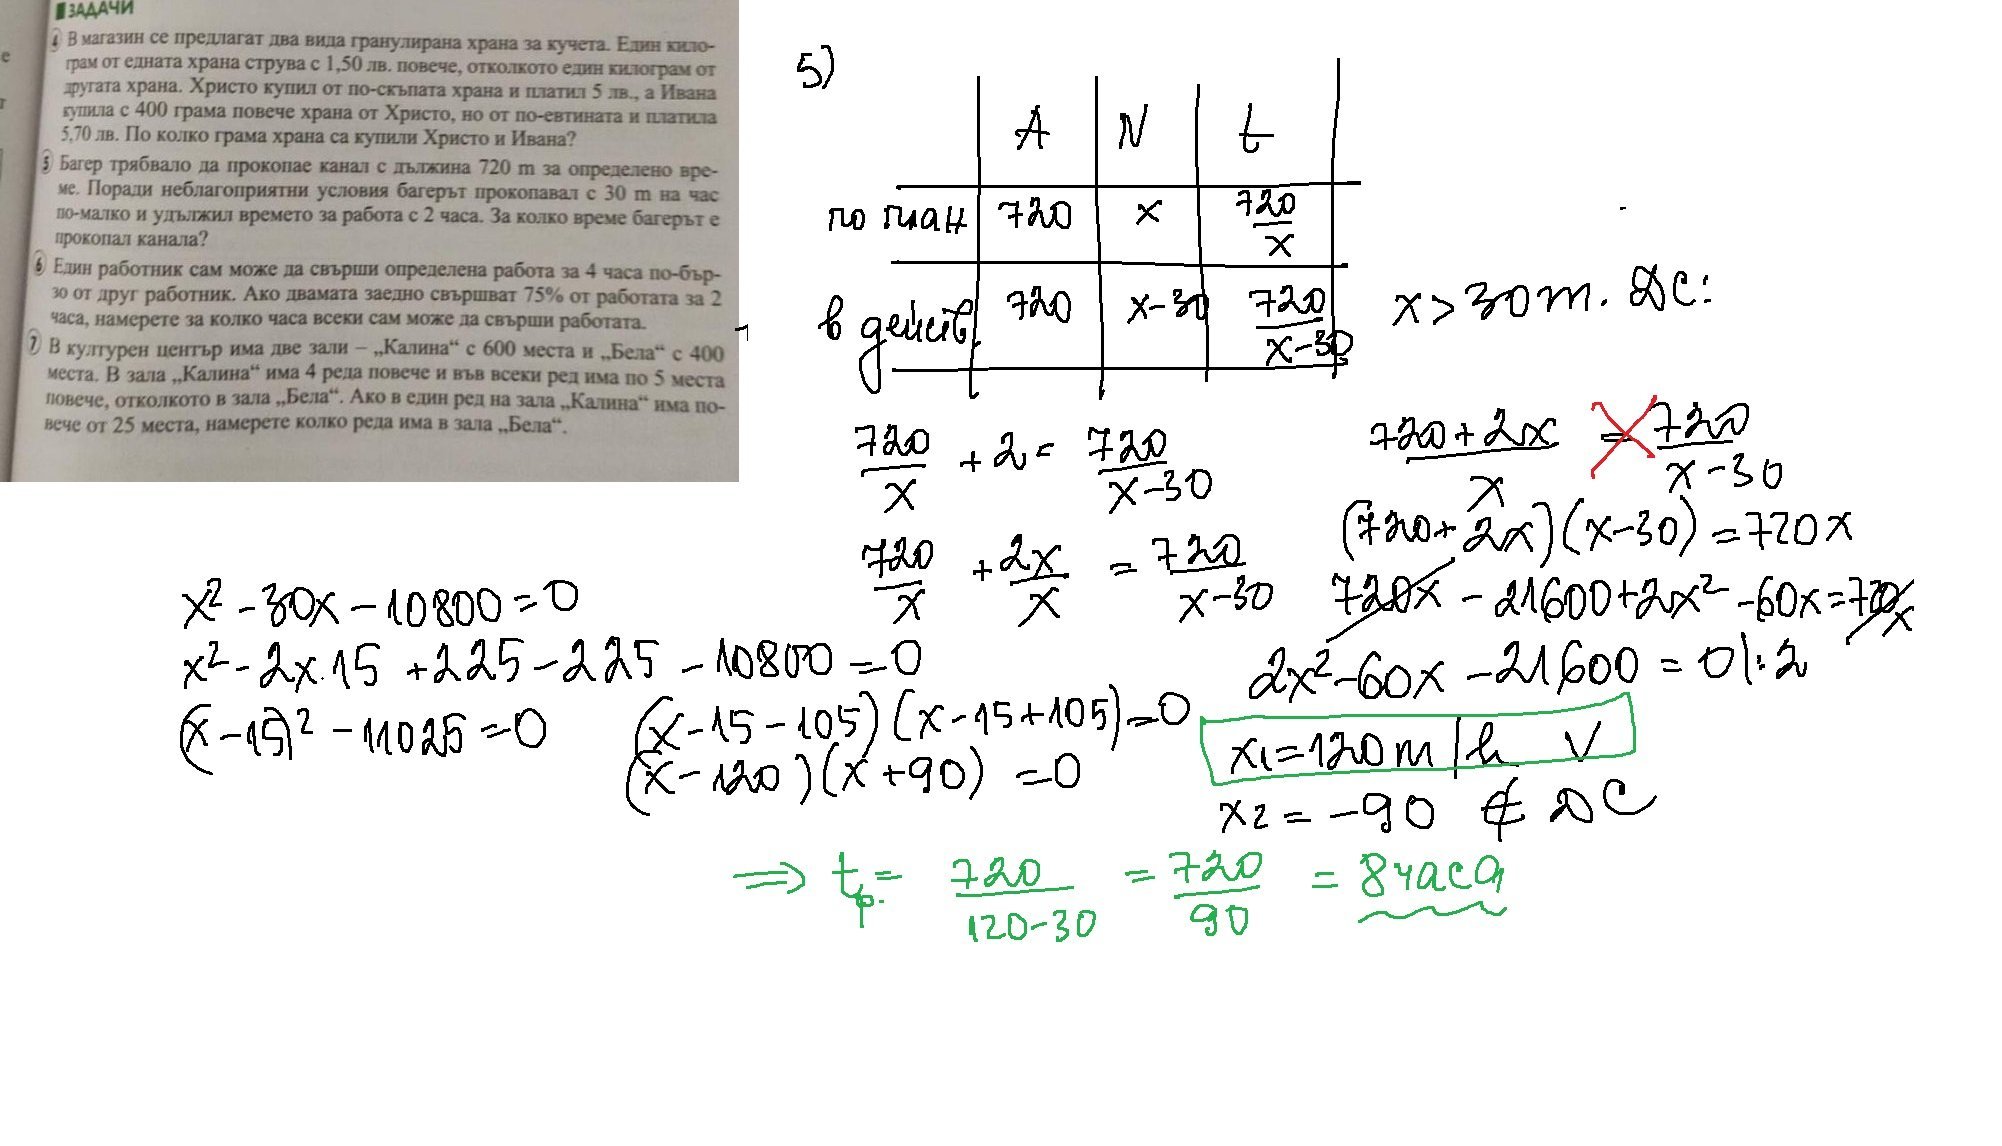 ЗАДАЧИ
4 В магазин се предлагат два вида гранулирана храна за кучета. Един кило-
грам от едната храна струва с 1,50 лв. повече, отколкото един килограм от
другата храна. Христо купил от по-скъпата храна и платил 5 лв., а Ивана
купила с 400 грама повече храна от Христо, но от по-евтината и платила
5,70 лв. По колко грама храна са купили Христо и Ивана?
5 Багер трябвало да прокопае канал с дължина 720 m за определено вре-
ме. Поради неблагоприятни условия багерът прокопавал с 30 m на час
по-малко и удължил времето за работа с 2 часа. За колко време багерът е
прокопал канала?
6 Един работник сам може да свърши определена работа за 4 часа по-бър-
зо от друг работник. Ако двамата заедно свършват 75% от работата за 2
часа, намерете за колко часа всеки сам може да свърши работата.
7 В културен център има две зали – „Калина“ с 600 места и „Бела“ с 400
места. В зала „Калина“ има 4 реда повече и във всеки ред има по 5 места
повече, отколкото в зала „Бела“. Ако в един ред на зала „Калина“ има по-
вече от 25 места, намерете колко реда има в зала „Бела“.
5)
A N t
по план 720 x 720/x
в действ. 720 x-30 720/x-30
x>30m. ДС:
720/x + 2 = 720/x-30
720/x + 2x/x = 720/x-30
720+2x/x = 720/x-30
(720+2x)(x-30)=720x
720x - 21600+2x² -60x=720x
2x²-60x-21600=0|:2
x²-30x-10800=0
x²-2x.15+225-225-10800=0
(x-15)²-11025=0
(x-15-105)(x-15+105)=0
(x-120)(x+90)=0
x₁=120m/h V
x₂=-90 ∉ ДС
⇒ tф.= 720/120-30 = 720/90 = 8 часа